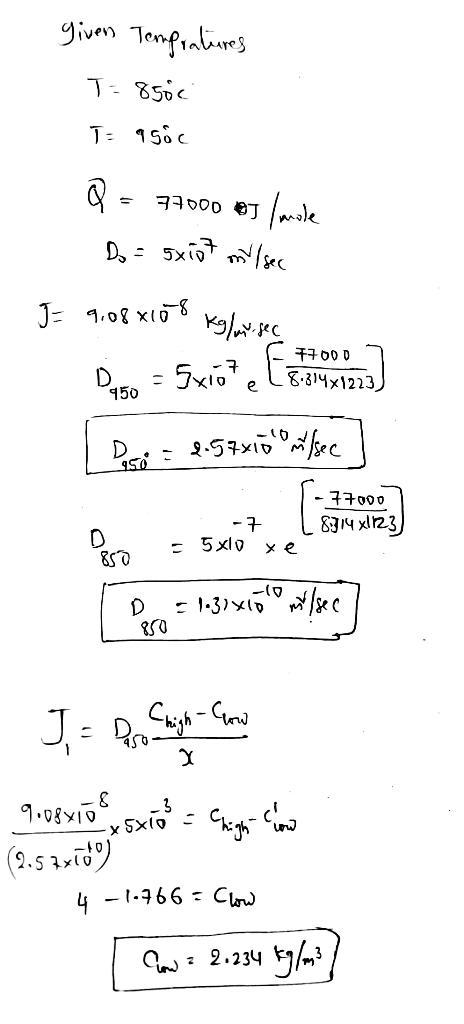 given Tempratures
T = 850°c
T = 950°c
Q = 77000 J/mole
D₀ = 5×10⁻⁷ m²/sec
J = 9.08 ×10⁻⁸ kg/m².sec
D₉₅₀ = 5×10⁻⁷ e^[-77000/(8.314×1223)]
D₉₅₀° = 2.57×10⁻¹⁰ m²/sec
D₈₅₀ = 5×10⁻⁷ × e^[-77000/(8.314×1123)]
D₈₅₀ = 1.31×10⁻¹⁰ m²/sec
J₁ = D₉₅₀ (Chigh - Clow)/x
9.08×10⁻⁸/(2.57×10⁻¹⁰) × 5×10⁻³ = Chigh - C'low
4 - 1.766 = Clow
Clow = 2.234 kg/m³